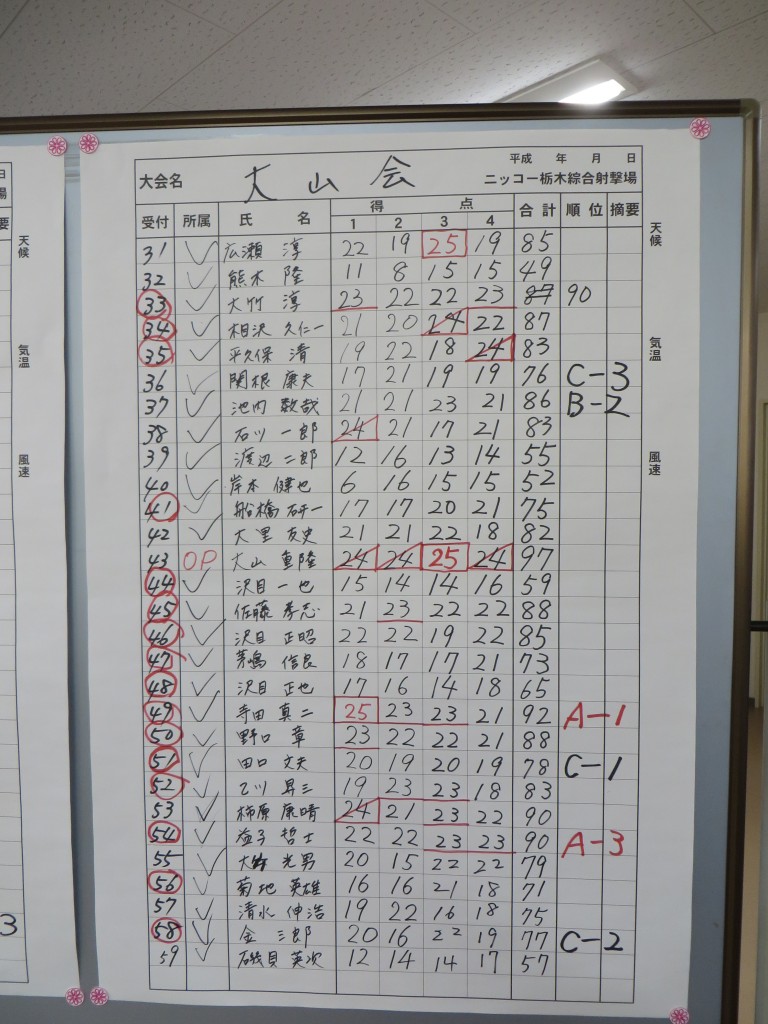 平成 年 月 日
大会名 大山会 ニッコー栃木綜合射撃場
受付 所属 氏 名 得 点 合計 順位 摘要
1 2 3 4
31 広瀬 淳 22 19 25 19 85
32 熊木 隆 11 8 15 15 49
33 大竹 淳 23 22 22 23 87 90
34 相沢 久仁一 21 20 24 22 87
35 平久保 清 19 22 18 24 83
36 関根 康夫 17 21 19 19 76 C-3
37 池内 敦哉 21 21 23 21 86 B-2
38 石川 一郎 24 21 17 21 83
39 渡辺 二郎 12 16 13 14 55
40 岸本 健也 6 16 15 15 52
41 船橋 研一 17 17 20 21 75
42 大里 友史 21 21 22 18 82
43 OP 大山 重隆 24 24 25 24 97
44 沢目 一也 15 14 14 16 59
45 佐藤 孝志 21 23 22 22 88
46 沢目 正昭 22 22 19 22 85
47 茅嶋 信良 18 17 17 21 73
48 沢目 正也 17 16 14 18 65
49 寺田 真二 25 23 23 21 92 A-1
50 野口 章 23 22 22 21 88
51 田口 文夫 20 19 20 19 78 C-1
52 乙川 昇三 19 23 23 18 83
53 柿原 康晴 24 21 23 22 90
54 益子 哲士 22 22 23 23 90 A-3
55 大竹 光男 20 15 22 22 79
56 菊地 英雄 16 16 21 18 71
57 清水 伸浩 19 22 16 18 75
58 金 三郎 20 16 22 19 77 C-2
59 磯貝 英次 12 14 14 17 57
天候
気温
風速
日
場
要
天候
気温
風速
3